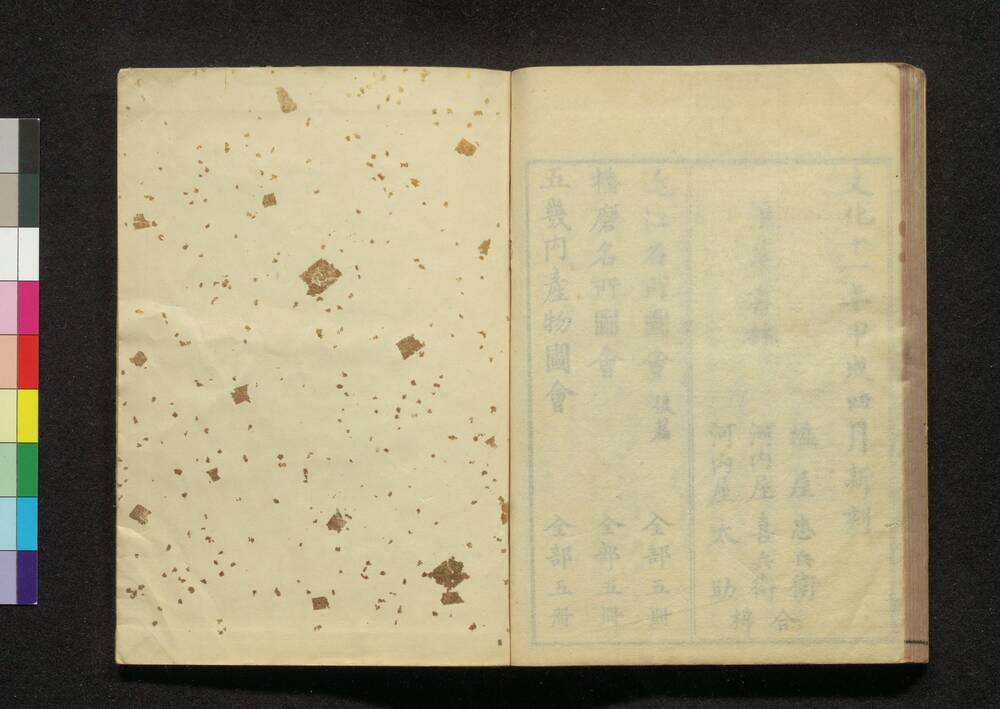 文化十一年甲戌四月新刻
書林
屋忠兵衛
河内屋喜兵衛
河内屋太助
合梓
近江名所圖會 後篇 全部五冊
播磨名所圖會 全部五冊
五畿内產物圖會 全部五冊